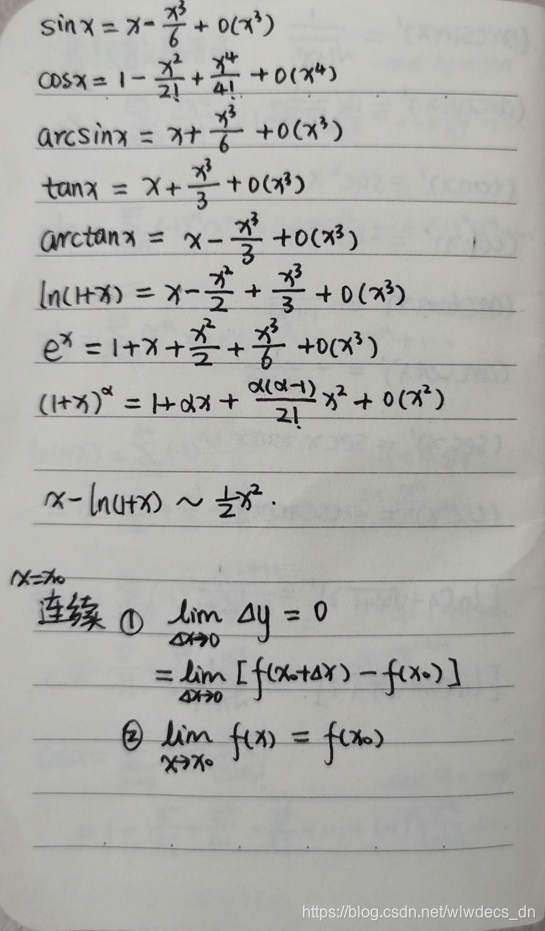 sinx = x - x³/6 + o(x³)
cosx = 1 - x²/2! + x⁴/4! + o(x⁴)
arcsinx = x + x³/6 + o(x³)
tanx = x + x³/3 + o(x³)
arctanx = x - x³/3 + o(x³)
ln(1+x) = x - x²/2 + x³/3 + o(x³)
eˣ = 1 + x + x²/2 + x³/6 + o(x³)
(1+x)^α = 1 + αx + α(α-1)/2! x² + o(x²)
x - ln(1+x) ~ ½x².
x=x₀
连续 ① lim Δx→0 Δy = 0
= lim Δx→0 [f(x₀+Δx) - f(x₀)]
② lim x→x₀ f(x) = f(x₀)
https://blog.csdn.net/wlwdecs_dn